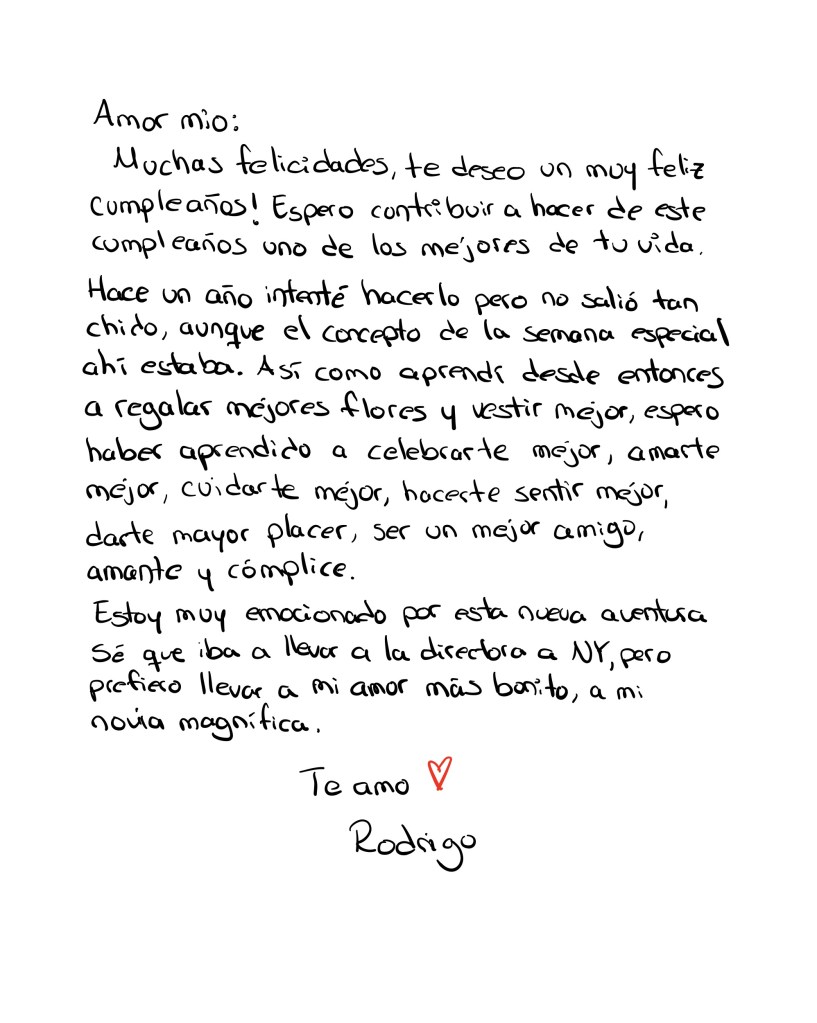 Amor mio:
Muchas felicidades, te deseo un muy feliz
cumpleaños! Espero contribuir a hacer de este
cumpleaños uno de los mejores de tu vida.
Hace un año intenté hacerlo pero no salió tan
chido, aunque el concepto de la semana especial
ahí estaba. Así como aprendí desde entonces
a regalar mejores flores y vestir mejor, espero
haber aprendido a celebrarte mejor, amarte
mejor, cuidarte mejor, hacerte sentir mejor,
darte mayor placer, ser un mejor amigo,
amante y cómplice.
Estoy muy emocionado por esta nueva aventura
Sé que iba a llevar a la directora a NY, pero
prefiero llevar a mi amor más bonito, a mi
novia magnífica.
Te amo ♡
Rodrigo